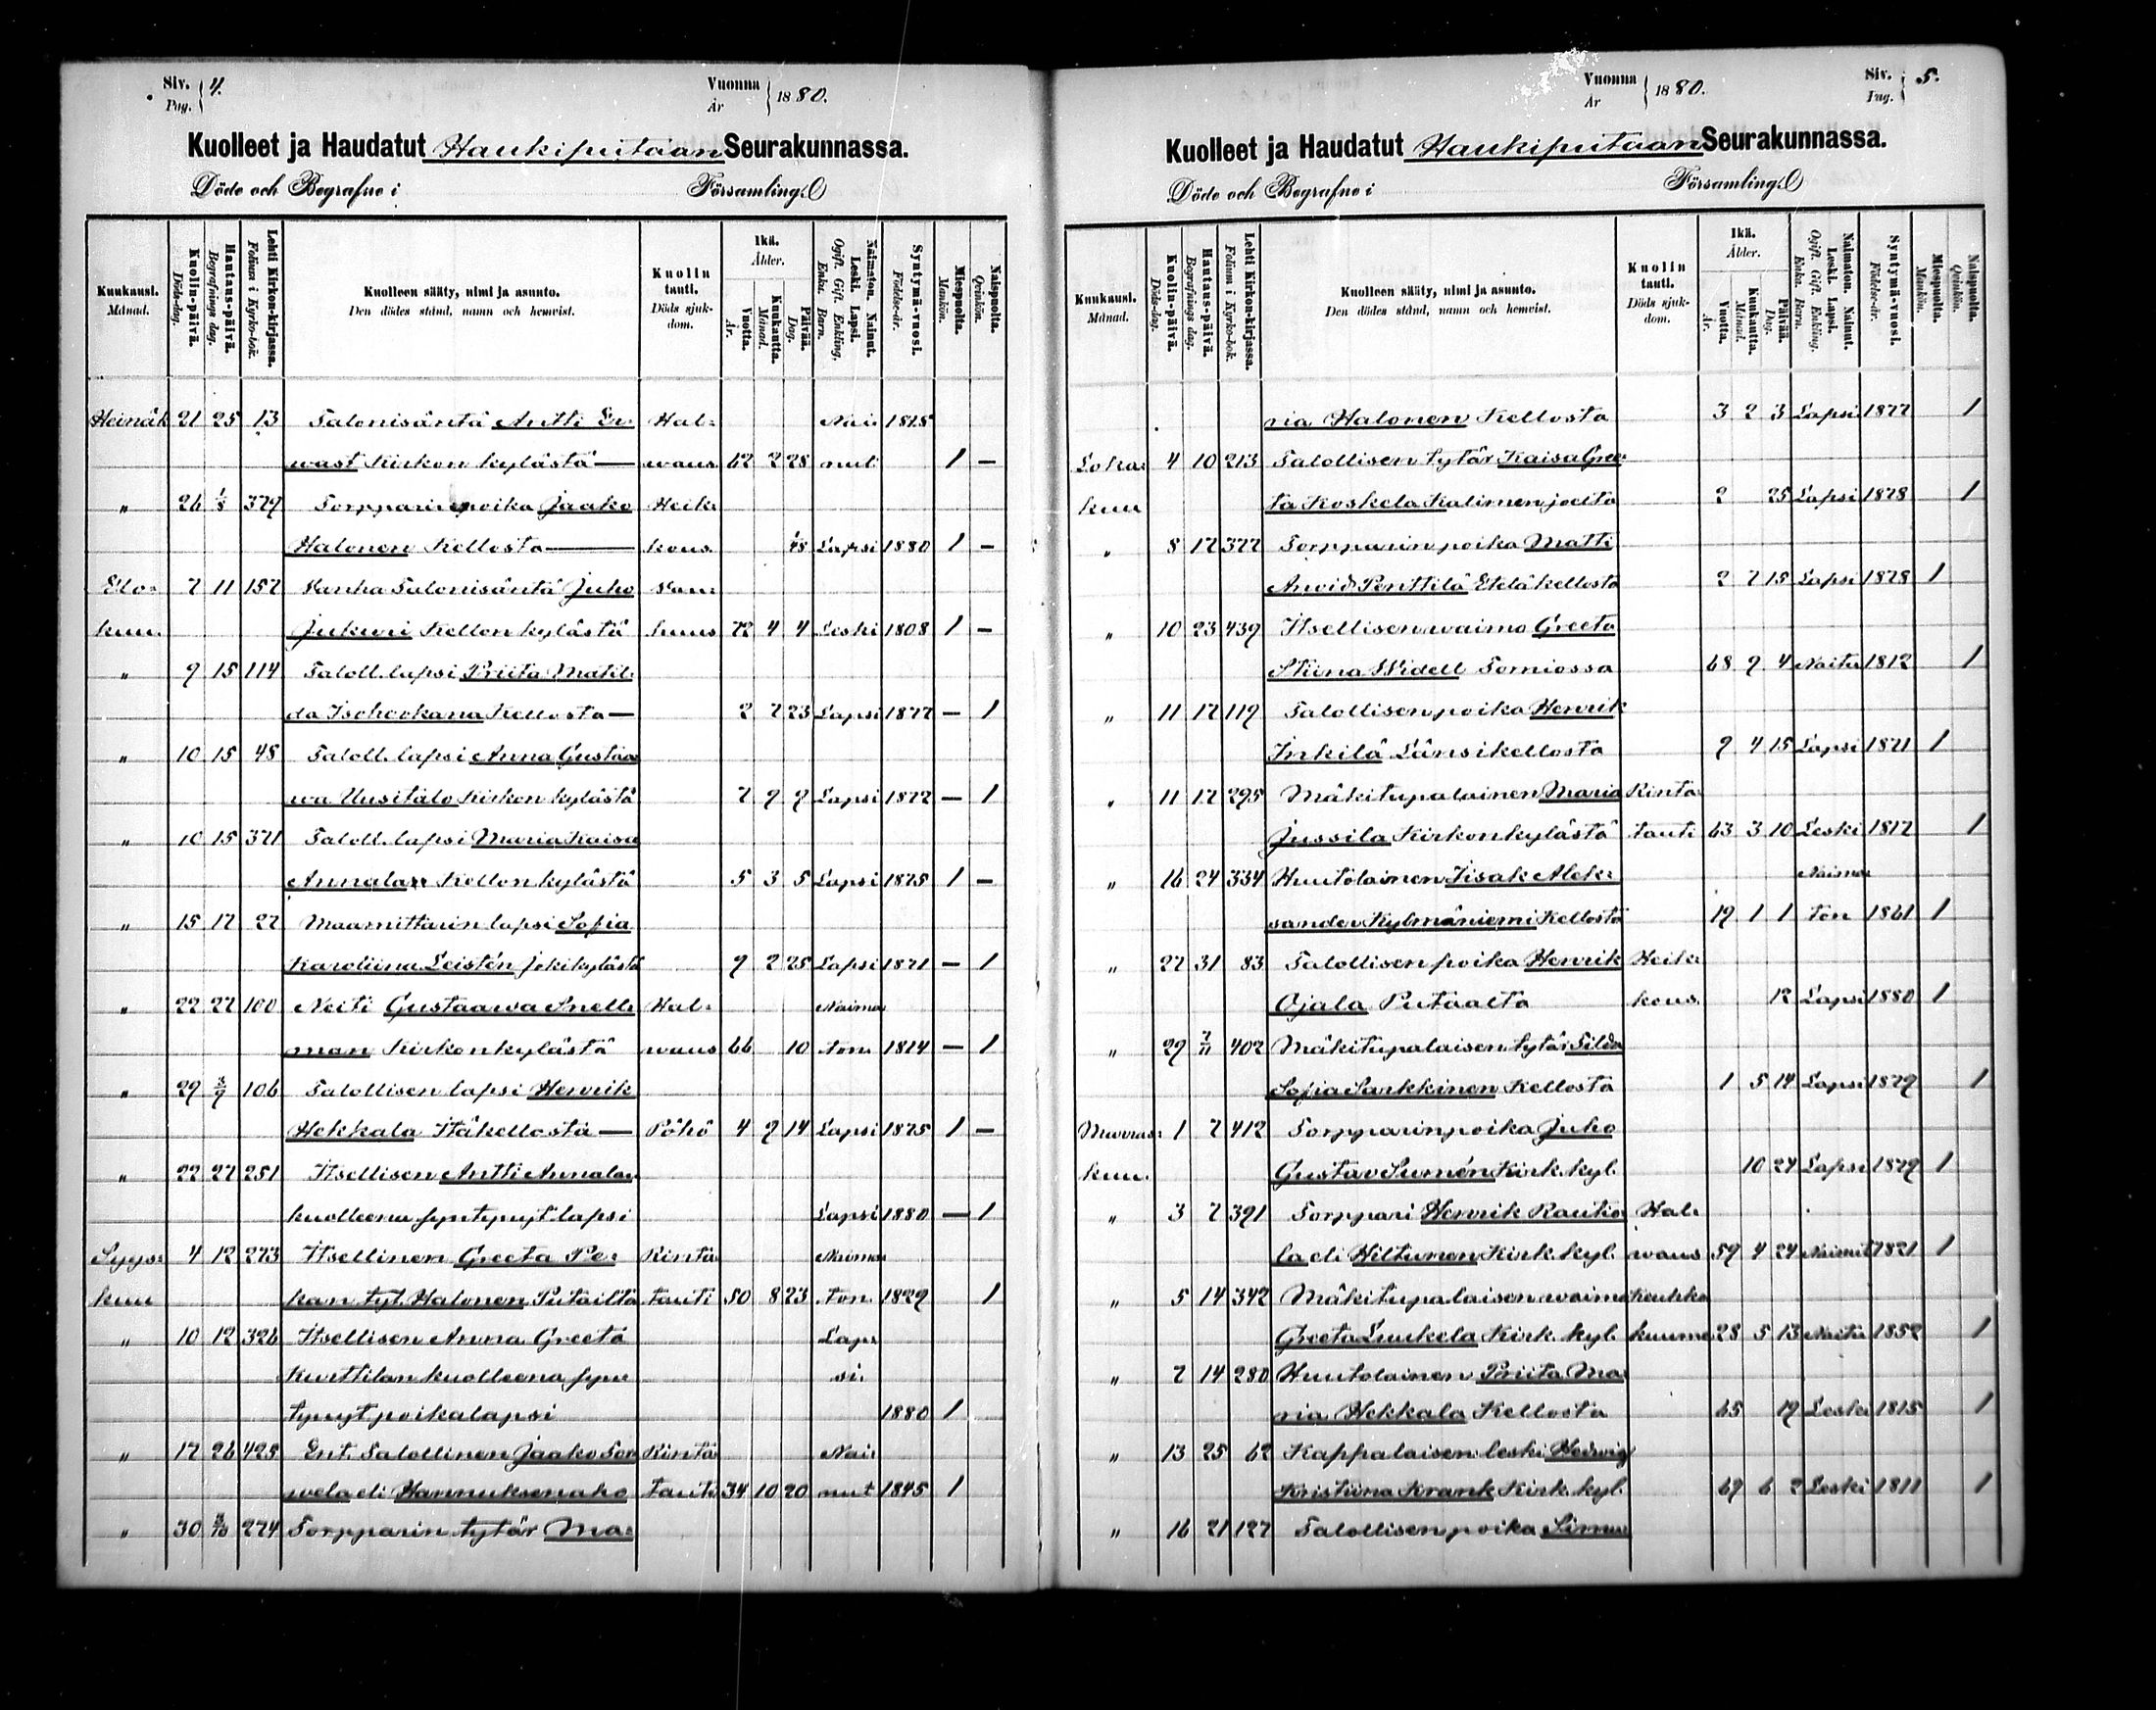 Siv. 4.
Pag.
Vuonna 1880.
År
Kuolleet ja Haudatut Haukiputaan Seurakunnassa.
Döde och Begrafne i Församling.
Kuukausi. Månad.
Kuolin-päivä. Döds-dag.
Hautaus-päivä. Begrafnings dag.
Lehti Kirkon-kirjassa. Folium i Kyrko-bok.
Kuolleen sääty, nimi ja asunto. Den dödes stånd, namn och hemvist.
Kuolin tauti. Döds sjuk-dom.
Ikä. Ålder.
Vuotta. År.
Kuukautta. Månad.
Päivää. Dag.
Naimaton. Nainut. Leski. Lapsi. Ogift. Gift. Enkling. Enka. Barn.
Syntymä-vuosi. Födelse-år.
Miespuolta. Mankön.
Naispuolta. Qvinkön.
Heinäk 21 25 13 Talonisäntä Antti Er- Hal- Nai- 1818
wast Kirkon kylästä — waus 62 2 28 nut 1 —
" 26 1/8 379 Torpparin poika Jaako Heik-
Halonen Kellosta — kous Lapsi 1880 1 —
Elo- 7 11 157 Vanha Talonisäntä Juho Van-
kuu. Jukuri Kellon kylästä huus 72 4 4 Leski 1808 1 —
" 9 15 114 Taloll. lapsi Priita Matil-
da Kellosta — 2 7 23 Lapsi 1877 — 1
" 10 15 48 Taloll. lapsi Anna Gustaa-
wa Uusitalo Kirkon kylästä 7 9 9 Lapsi 1872 — 1
" 10 15 371 Taloll. lapsi Maria Kaisa
Annalan Kellon kylästä 5 3 5 Lapsi 1875 1 —
" 15 17 27 Maamittarin lapsi Sofia
Karoliina Leistén Jokikylästä 9 2 25 Lapsi 1871 — 1
" 22 27 100 Neiti Gustaawa Snell- Hal- Naima-
man Kirkonkylästä waus 66 10 ton 1814 — 1
" 29 3/9 106 Talollisen lapsi Henrik
Hekkala Itäkellosta — Pöhö 4 9 14 Lapsi 1875 1 —
" 22 27 251 Itsellisen Antti Annalan
kuolleena syntynyt lapsi Lapsi 1880 — 1
Syys- 4 12 273 Itsellinen Greeta Pe- Rinta- Naima-
kuu kan tyt. Halonen Putailta tauti 50 8 23 ton 1829 1
" 10 12 326 Itsellisen Anna Greeta Lap-
Kurttilan kuolleena syn- si.
tynyt poikalapsi 1880 1
" 17 26 425 Ent. Talollinen Jaako Rinta- Nai-
wela eli Hannuksenaho tauti 34 10 20 nut 1845 1
" 30 3/10 274 Torpparin tytär Ma-
Vuonna 1880.
År
Siv. 5.
Pag.
Kuolleet ja Haudatut Haukiputaan Seurakunnassa.
Döde och Begrafne i Församling.
Kuukausi. Månad.
Kuolin-päivä. Döds-dag.
Hautaus-päivä. Begrafnings dag.
Lehti Kirkon-kirjassa. Folium i Kyrko-bok.
Kuolleen sääty, nimi ja asunto. Den dödes stånd, namn och hemvist.
Kuolin tauti. Döds sjuk-dom.
Ikä. Ålder.
Vuotta. År.
Kuukautta. Månad.
Päivää. Dag.
Naimaton. Nainut. Leski. Lapsi. Ogift. Gift. Enkling. Enka. Barn.
Syntymä-vuosi. Födelse-år.
Miespuolta. Mankön.
Naispuolta. Qvinkön.
ria Halonen Kellosta 3 2 3 Lapsi 1877 1
Loka- 4 10 213 Talollisen tytär Kaisa Gree-
kuu ta Koskela Kalimen joelta 2 25 Lapsi 1878 1
" 8 17 377 Torpparin poika Matti
Arvid Penttilä Eteläkellosta 2 7 15 Lapsi 1878 1
" 10 23 439 Itsellisen waimo Greeta
Stiina Widell Torniossa 68 9 4 Naitu 1812 1
" 11 17 119 Talollisen poika Henrik
Inkilä Länsikellosta 9 4 15 Lapsi 1871 1
" 11 17 295 Mäkitupalainen Maria Rinta
Jussila Kirkonkylästä tauti 63 3 10 Leski 1817 1
" 16 24 334 Huutolainen Iisak Alek- Naima-
sander Kylmäniemi Kellosta 19 1 1 ton 1861 1
" 27 31 83 Talollisen poika Henrik Heik-
Ojala Putaalta kous 12 Lapsi 1880 1
" 29 7/11 402 Mäkitupalaisen tytär Hilda
Sofia Sarkkinen Kellosta 1 5 14 Lapsi 1879 1
Marras- 1 7 412 Torpparin poika Juho
kuu. Gustav Kirk. kyl. 10 24 Lapsi 1879 1
" 3 7 391 Torppari Henrik Rautio- Hal-
la eli Hiltunen Kirk. kyl. waus 59 4 24 1821 1
" 5 14 342 Mäkitupalaisen waimo Keuhko
Greeta Luukela Kirk. kyl. kuume 28 5 13 Naitu 1852 1
" 7 14 280 Huutolainen Priita Ma-
ria Hekkala Kellosta 65 19 Leski 1815 1
" 13 25 62 Kappalaisen leski Hedwig
Kristiina Krank Kirk. kyl. 69 6 2 Leski 1811 1
" 16 21 127 Talollisen poika